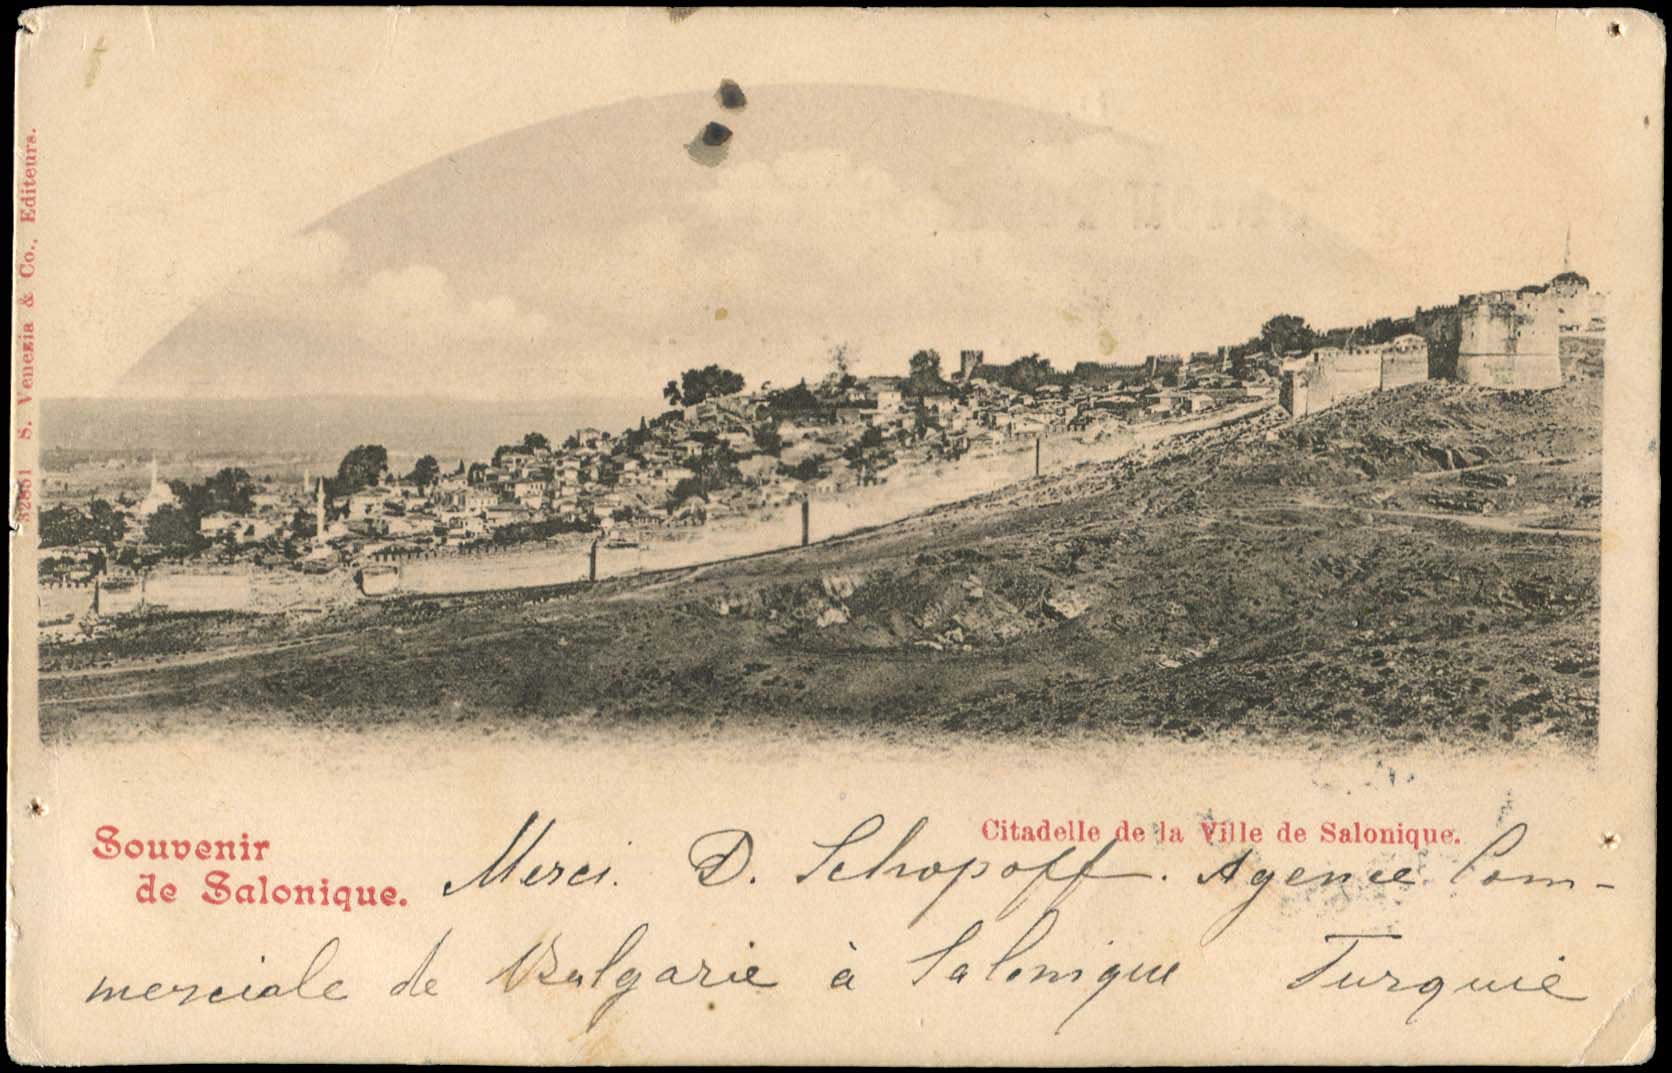 S. Venezia & Co., Editeurs.
Citadelle de la Ville de Salonique.
Souvenir
de Salonique.
Merci. D. Schopoff. Agence Com-
merciale de Bulgarie à Salonique Turquie